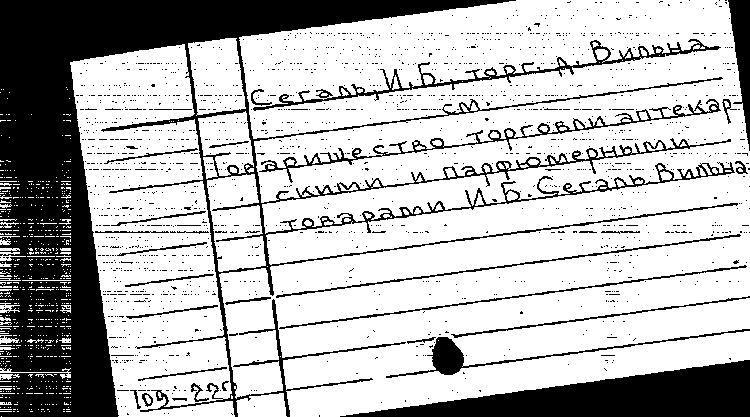 Сегаль, И.Б., торг. д. Вильна
см.
Товарищество торговли аптекар-
скими и парфюмерными
товарами И.Б. Сегаль Вильна
109-222